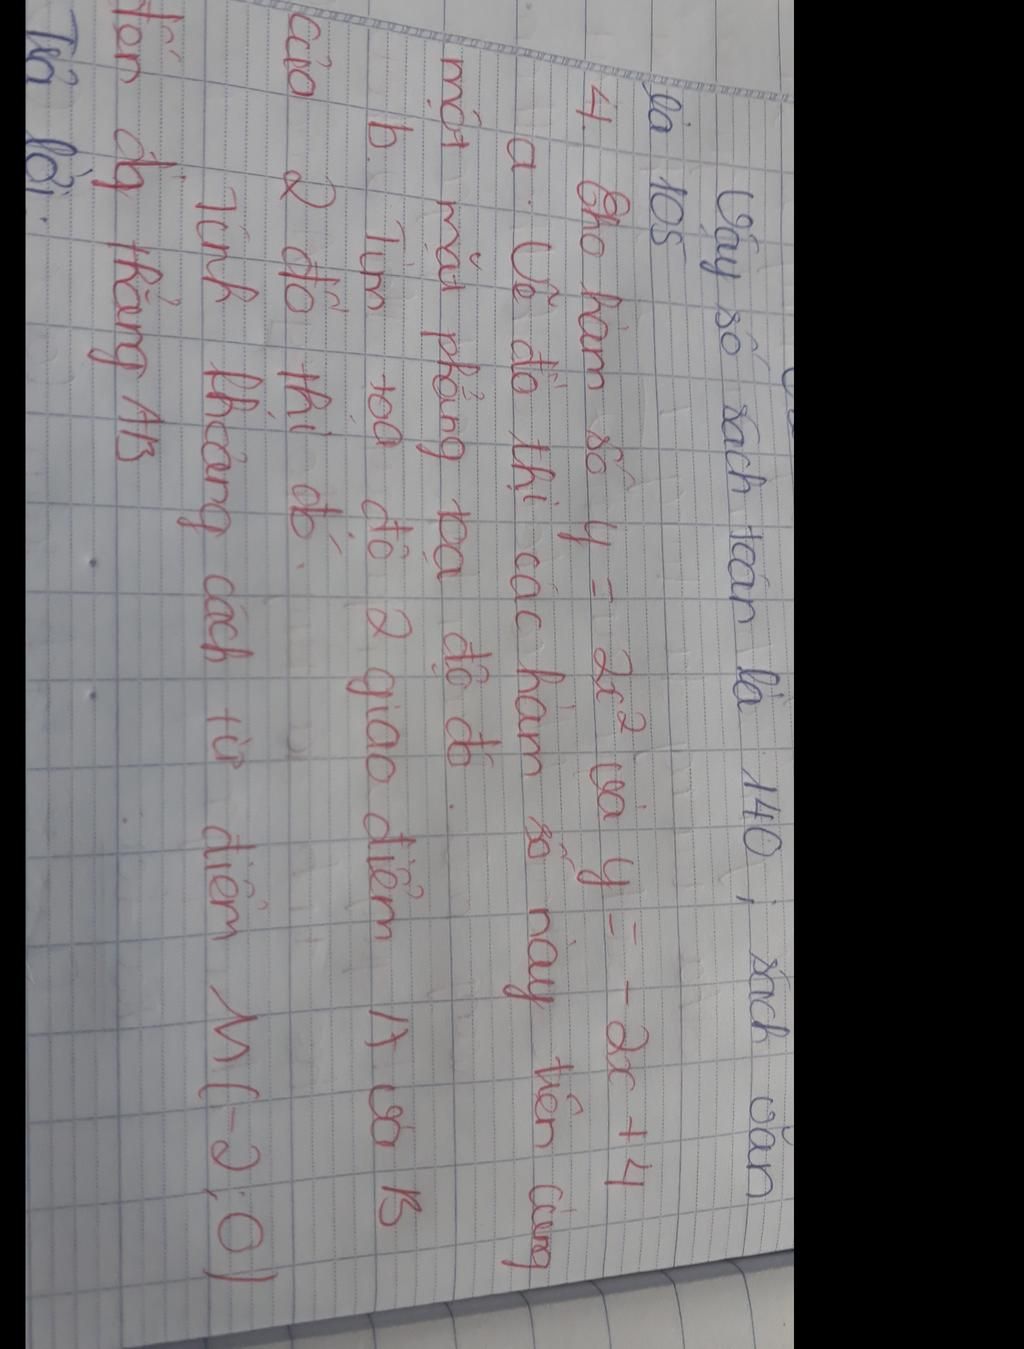 Vậy số sách toán là 140 ; sách văn
là 105
4. Cho hàm số y = 2x² và y = - 2x + 4
a. Vẽ đồ thị các hàm số này trên cùng
một mặt phẳng tọa độ đó.
b. Tìm toạ độ 2 giao điểm A và B
của 2 đồ thị đó.
Tính khoảng cách từ điểm M(-2; 0)
đến đg thẳng AB
Trả lời.